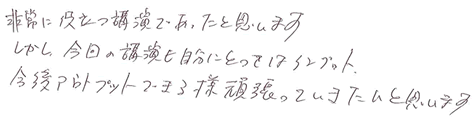 非常に役立つ講演であったと思います
しかし、今回の講演も自分にとってはインプット、
今後アウトプットできる様頑張っていきたいと思います